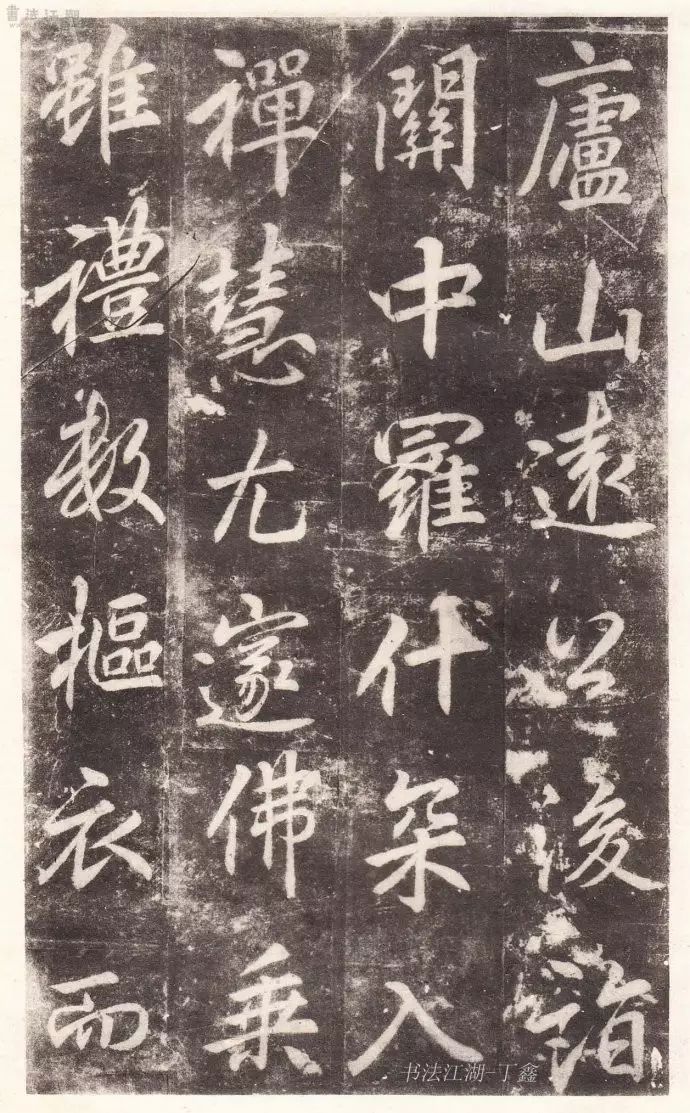 廬山遠公後詣
關中羅什罙入
禪慧尤邃佛乘
雖禮數摳衣而
書法江湖
书法江湖-丁鑫